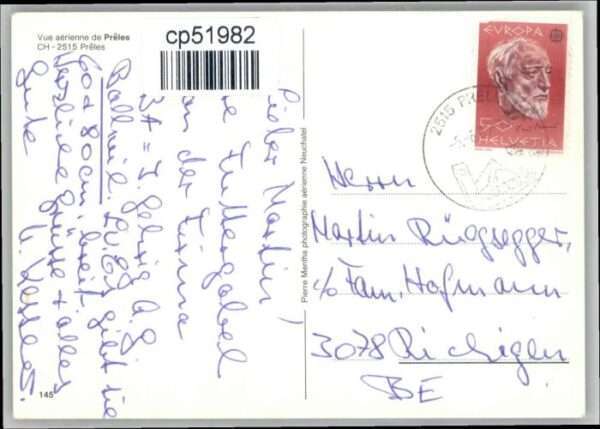 Vue aérienne de Prêles
CH - 2515 Prêles
cp51982
Lieber Martin!
Futtergabel
von der Firma
3A = J. Gehrig A.G.
Ballwil. LU Es gibt sie
60 + 80 cm breit.
Herzliche Grüsse + alles
Gute
145
Pierre Mentha photographie aérienne Neuchatel
EUROPA
50
HELVETIA
2515 PRÊLES
Herrn
Martin Rüegsegger,
c/o Fam. Hofmann
3078 Richigen
BE